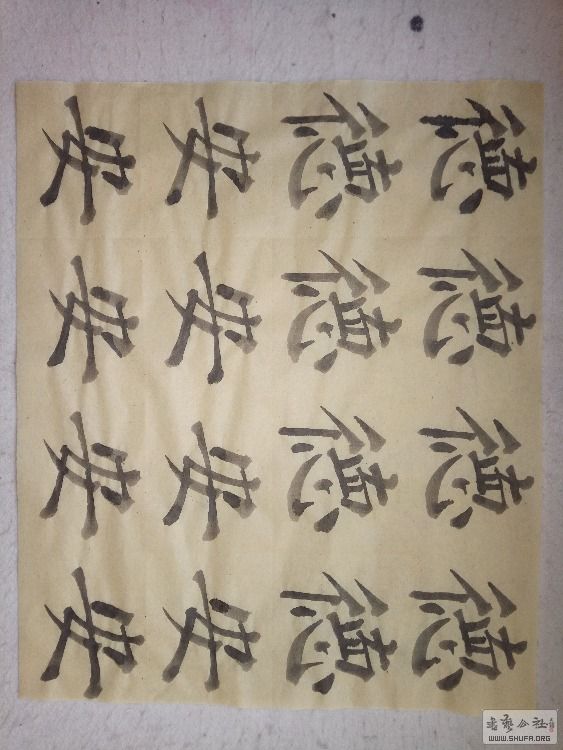 德德德德
德德德德
安安安安
安安安安
书艺公社
WWW.SHUFA.ORG